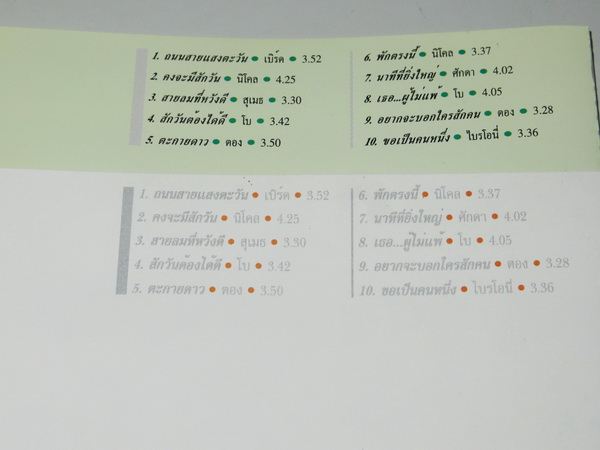 1. ถนนสายแสงตะวัน ● เบิร์ด ● 3.52
2. คงจะมีสักวัน ● นิโคล ● 4.25
3. สายลมที่หวังดี ● สุเมธ ● 3.30
4. สักวันต้องได้ดี ● โบ ● 3.42
5. ตะกายดาว ● ตอง ● 3.50
6. พักตรงนี้ ● นิโคล ● 3.37
7. นาทีที่ยิ่งใหญ่ ● ศักดา ● 4.02
8. เธอ...ผู้ไม่แพ้ ● โบ ● 4.05
9. อยากจะบอกใครสักคน ● ตอง ● 3.28
10. ขอเป็นคนหนึ่ง ● ไบรโอนี่ ● 3.36
1. ถนนสายแสงตะวัน ● เบิร์ด ● 3.52
2. คงจะมีสักวัน ● นิโคล ● 4.25
3. สายลมที่หวังดี ● สุเมธ ● 3.30
4. สักวันต้องได้ดี ● โบ ● 3.42
5. ตะกายดาว ● ตอง ● 3.50
6. พักตรงนี้ ● นิโคล ● 3.37
7. นาทีที่ยิ่งใหญ่ ● ศักดา ● 4.02
8. เธอ...ผู้ไม่แพ้ ● โบ ● 4.05
9. อยากจะบอกใครสักคน ● ตอง ● 3.28
10. ขอเป็นคนหนึ่ง ● ไบรโอนี่ ● 3.36